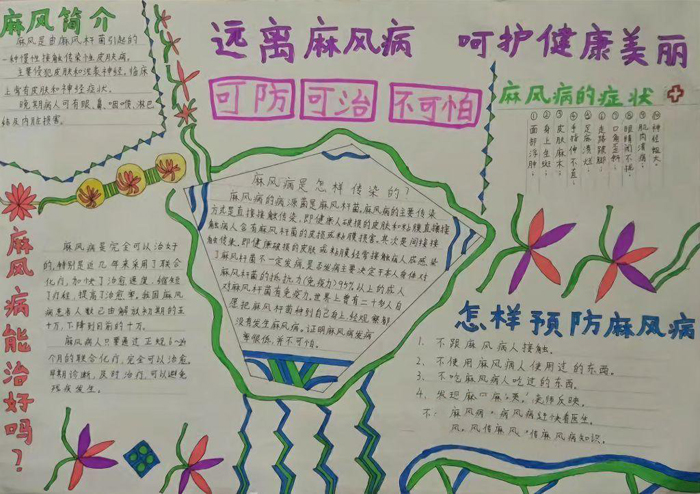 麻风简介
麻风是由麻风杆菌引起的
一种慢性接触传染性皮肤病,
主要侵犯皮肤和浅表神经,临床
上常有皮肤和神经症状,
晚期病人可有眼、鼻、咽喉、淋巴
结及内脏损害。
远离麻风病 呵护健康美丽
可防 可治 不可怕
麻风病的症状
①面部浮肿。
②身上生斑
③皮肤麻木。
④手指伸不直。
⑤足底溃烂
⑥走路跛脚。
⑦口角歪斜。
⑧眼睛闭不拢。
⑨肌肉
⑩神经粗大。
麻风病是怎样传染的?
麻风病的病源菌是麻风杆菌,麻风病的主要传染
方式是直接接触传染,即健康人破损的皮肤和粘膜直接接
触病人含有麻风杆菌的皮损或粘膜损害。其次是间接接
触传染,即健康破损的皮肤或粘膜经常接触病人
了麻风杆菌不一定发病,是否发病主要决定于本人身体对
麻风杆菌的抵抗力(免疫力)95%以上的成人
对麻风杆菌有免疫力,世界上曾有二十多人自
愿把麻风杆菌种到自己身上,经观察都
没有发生麻风病。证明麻风病发病
率很低,并不可怕。
麻风病能治好吗?
麻风病是完全可以治好
的,特别是近几年来采用了联合
化疗,加快了治愈速度,缩短
了疗程,提高了治愈率,我国麻风
病患者人数已由解放初期的五
十万,下降到目前的十万。
麻风病人只要通过正规6~24
个月的联合化疗,完全可以治愈,
早期诊断,及时治疗,可以避免
残疾发生。
怎样预防麻风病
1. 不跟麻风病人接触。
2. 不使用麻风病人使用过的东西。
3. 不吃麻风病人吃过的东西。
4. 发现麻
麻风病